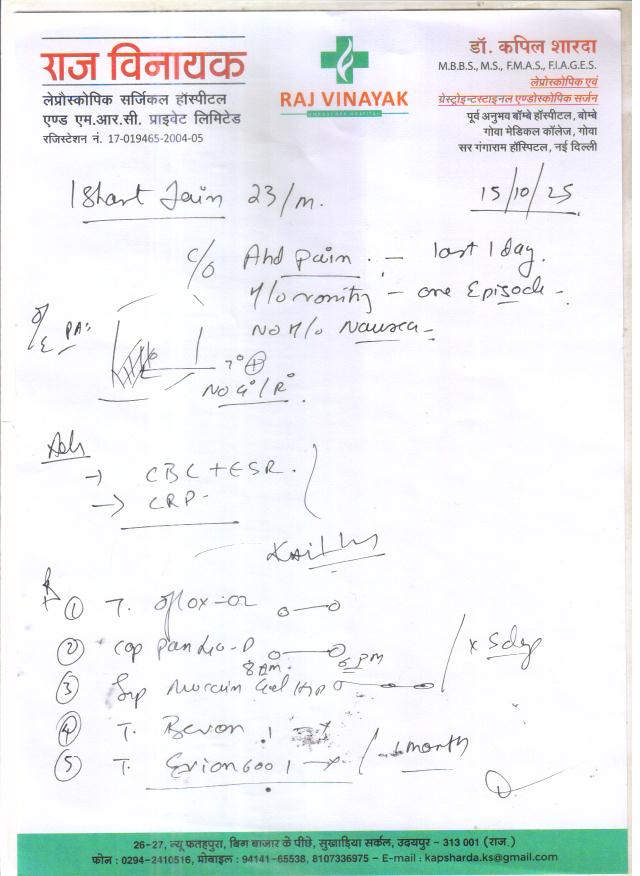 राज विनायक
लेप्रौस्कोपिक सर्जिकल हॉस्पीटल
एण्ड एम.आर.सी. प्राइवेट लिमिटेड
रजिस्टेशन नं. 17-019465-2004-05
RAJ VINAYAK
ENDOSCOPY HOSPITAL
डॉ. कपिल शारदा
M.B.B.S., M.S., F.M.A.S., F.I.A.G.E.S.
लेप्रोस्कोपिक एवं
गेस्ट्रोइन्टस्टाइनल एण्डोस्कोपिक सर्जन
पूर्व अनुभव बॉम्बे हॉस्पीटल, बोम्बे
गोवा मेडिकल कॉलेज, गोवा
सर गंगाराम हॉस्पिटल, नई दिल्ली
Jain 23/m.
15/10/25
c/o Abd pain - last 1 day.
H/o vomity - one Episode -
NO H/o Nausea -
O/E PA:
T° +
NO G°/R°
Adv
→ CBC + ESR.
→ CRP -
Rx
① T. Oflox-OZ
② Cap Pan 40-D
8 Am. 6 PM
x 5 day
③ Syp Mucain Gel
④ T. Bevon 1
⑤ T. Evion 600 1
1 month
26-27, न्यू फतहपुरा, बिग बाजार के पीछे, सुखाड़िया सर्कल, उदयपुर - 313 001 (राज.)
फोन : 0294-2410516, मोबाइल : 94141-65538, 8107336975 - E-mail : kapsharda.ks@gmail.com